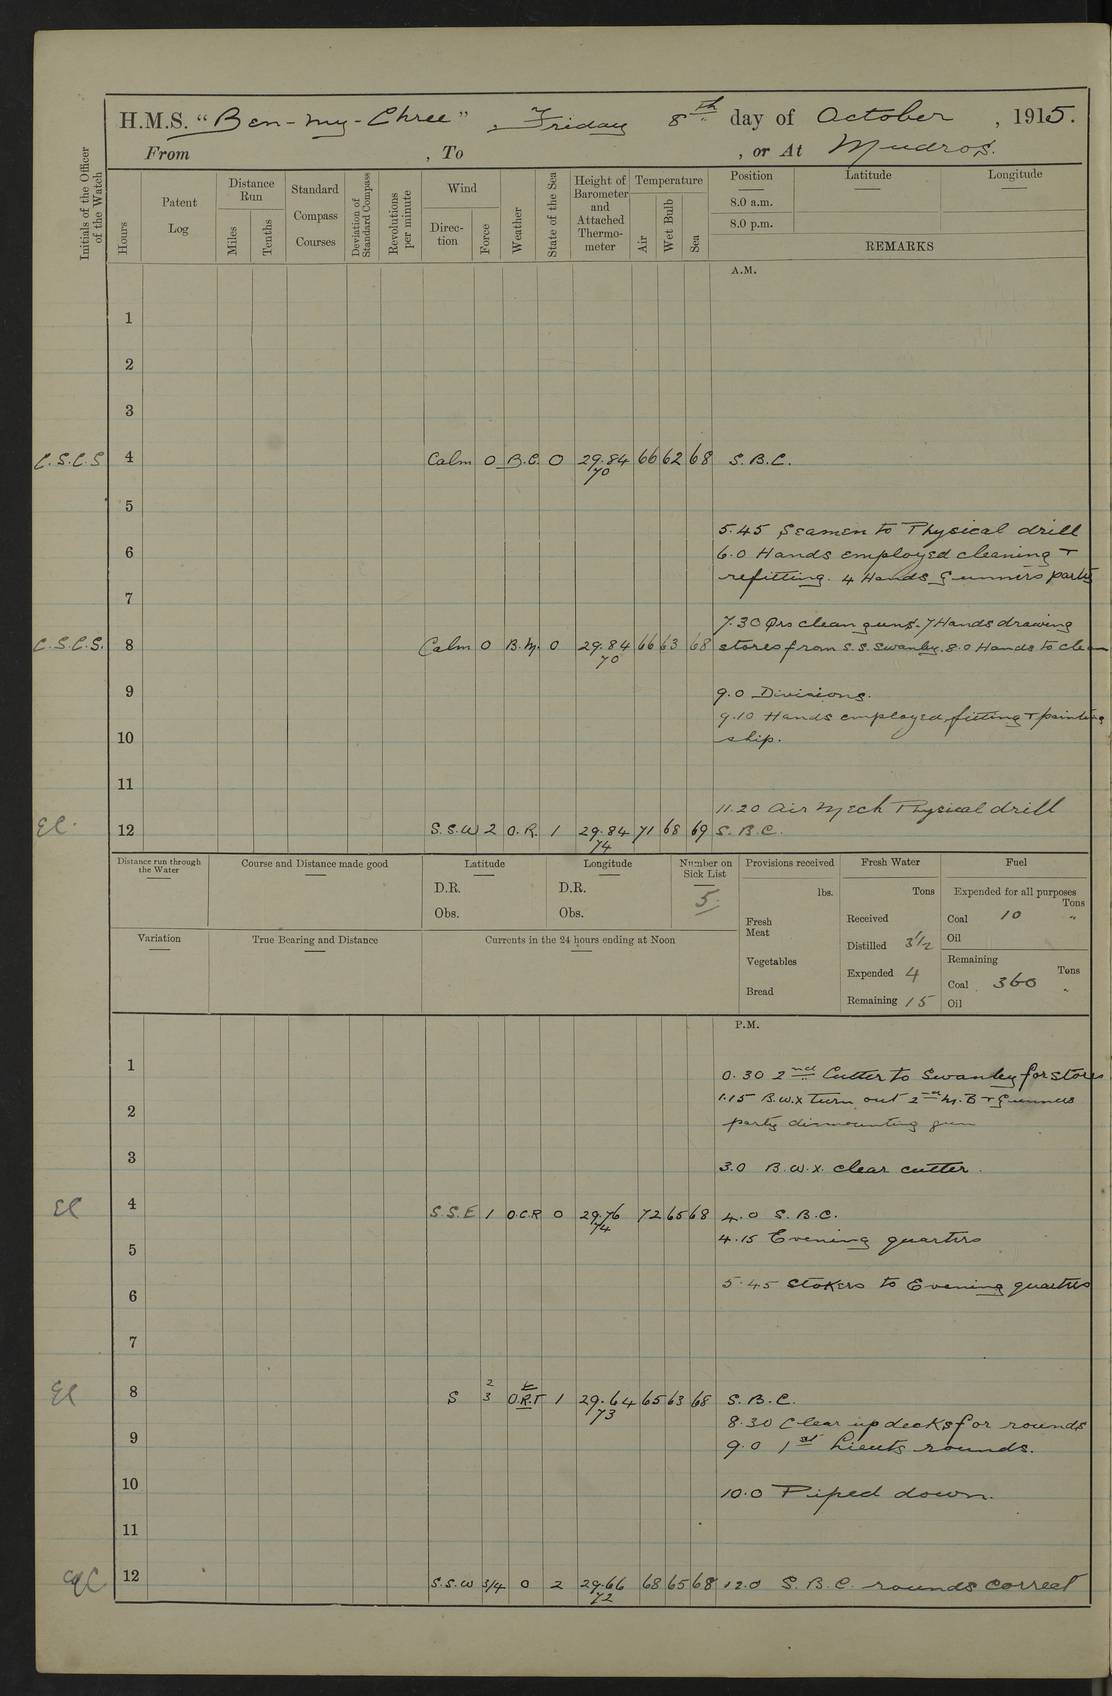 H.M.S. "Ben-my-Chree", Friday 8th day of October, 1915.
From , To , or At Mudros.
Initials of the Officer of the Watch
Hours
Patent Log
Distance Run
Miles
Tenths
Standard Compass Courses
Deviation of Standard Compass
Revolutions per minute
Wind
Direction
Force
Weather
State of the Sea
Height of Barometer and Attached Thermometer
Temperature
Air
Wet Bulb
Sea
Position
8.0 a.m.
8.0 p.m.
Latitude
Longitude
REMARKS
A.M.
1
2
3
C.S.C.S 4 Calm 0 B.C. 0 29.84 70 66 62 68 S.B.C.
5
5.45 Seamen to Physical drill
6 6.0 Hands employed cleaning +
refitting. 4 Hands Gunners party
7
7.30 Qrs clean guns. 7 Hands drawing
C.S.C.S. 8 Calm 0 B.M. 0 29.84 70 66 63 68 stores from S.S. Swanley. 8.0 Hands to clean
9 9.0 Divisions.
9.10 Hands employed fitting + painting
10 ship.
11
11.20 Air Mech Physical drill
12 S.S.W 2 O.R. 1 29.84 74 71 68 69 S.B.C.
Distance run through the Water
Course and Distance made good
Latitude
D.R.
Obs.
Longitude
D.R.
Obs.
Number on Sick List
5
Provisions received
lbs.
Fresh Meat
Vegetables
Bread
Fresh Water
Tons
Received
Distilled 3 1/2
Expended 4
Remaining 15
Fuel
Expended for all purposes
Tons
Coal 10 "
Oil
Remaining
Tons
Coal 360 "
Oil
Variation
True Bearing and Distance
Currents in the 24 hours ending at Noon
P.M.
1 0.30 2nd Cutter to Swanley for stores
1.15 B.W.X turn out 2nd M.B + Gunners
2 party dismounting gun
3 3.0 B.W.X. clear cutter.
4 S.S.E 1 O.C.R 0 29.76 74 72 65 68 4.0 S.B.C.
4.15 Evening quarters
5
5.45 Stokers to Evening quarters
6
7
8 S 2 3 O.R.T 1 29.64 73 65 63 68 S.B.C.
8.30 Clear up decks for rounds
9 9.0 1st Lieuts rounds.
10 10.0 Piped down.
11
12 S.S.W 3/4 0 2 29.66 72 68 65 68 12.0 S.B.C. rounds correct